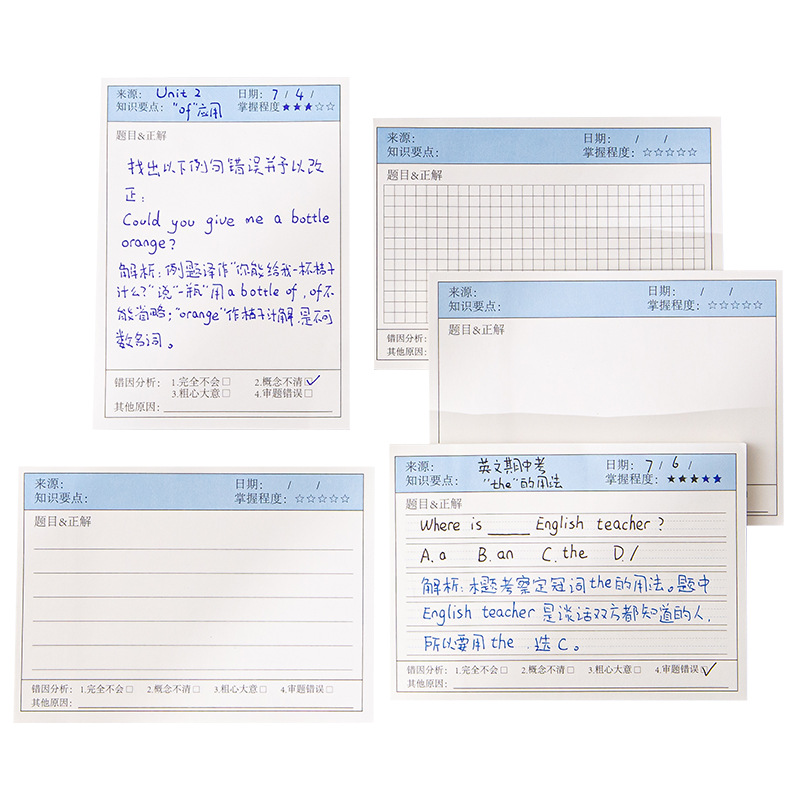 来源: Unit 2 日期: 7 / 4 /
知识要点: "of"应用 掌握程度★★★☆☆
题目&正解
找出以下例句错误并予以改
正:
Could you give me a bottle
orange?
解析:例题译作"你能给我一杯桔子
汁么?"说"一瓶"用a bottle of, of不
能省略;"orange"作桔子汁解,是不可
数名词。
错因分析: 1.完全不会□ 2.概念不清☑
3.粗心大意□ 4.审题错误□
其他原因:
来源: 日期: / /
知识要点: 掌握程度: ☆☆☆☆☆
题目&正解
错因分析:
其他原因:
来源: 日期: / /
知识要点: 掌握程度: ☆☆☆☆☆
题目&正解
来源: 英文期中考 日期: 7 / 6 /
知识要点: "the"的用法 掌握程度: ★★★★★
题目&正解
Where is ____ English teacher?
A. a B. an C. the D. /
解析:本题考察定冠词the的用法。题中
English teacher 是谈话双方都知道的人,
所以要用the,选C。
错因分析: 1.完全不会□ 2.概念不清□ 3.粗心大意□ 4.审题错误☑
其他原因:
来源: 日期: / /
知识要点: 掌握程度: ☆☆☆☆☆
题目&正解
错因分析: 1.完全不会□ 2.概念不清□ 3.粗心大意□ 4.审题错误□
其他原因: